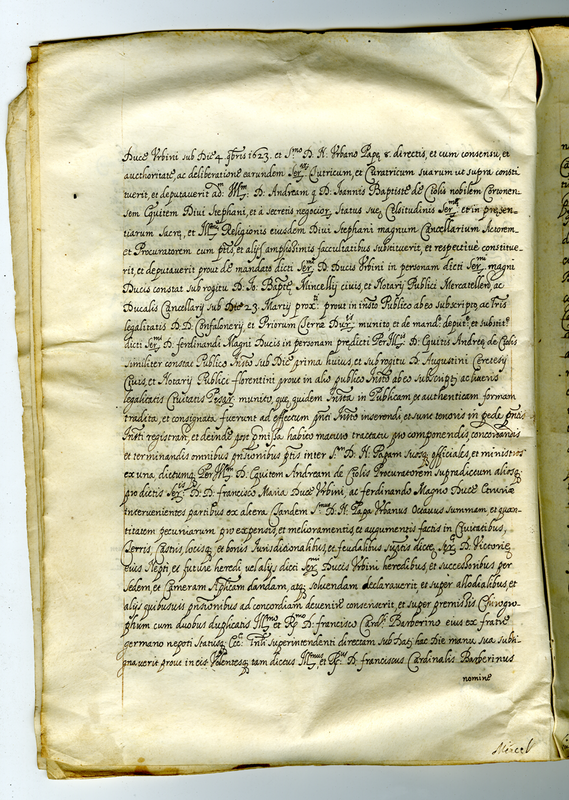 Duce Urbini sub Die 4 9bris 1623. et S.mo D. N. Urbano Papa 8. directis, et cum consensu, et
aucthoritate, ac deliberatione earundem Ser. Tutricum, et Curatricum suarum ut supra consti
tuerit, et deputaverit D. Andream q D. Joannis Baptiste de Ciolis nobilem Cortonen-
sem Equitem Divi Stephani, et à secretis negocior. Status sue Celsitudinis Ser. et in presen-
tiarum Sacre, et Religionis eiusdem Divi Stephani magnum Cancellarium Actorem
et Procuratorem cum ptis, et alijs amplissimis facultatibus substituerit, et respective constitue-
rit, et deputaverit prout de mandato dicti Ser. D. Ducis Urbini in personam dicti Ser. magni
Ducis constat sub rogitu D. Jo. Baptte Mincellij civis, et Notarij Publici Mercatellen, ac
Ducalis Cancellarij sub Die 23. Martij prox. prout in insto Publico ab eo subscripto, ac Lris
legalitatis D.D. Confalonerij et Priorum Terre munito, et de mand. deput. et substit.
dicti Ser. D. ferdinandi Magni Ducis in personam predicti D. Equitis Andree de Ciolis
similiter constat Publico Insto sub Die prima huius, et sub rogitu D. Augustini Ceretesij
Civis, et Notarij Publici florentini prout in alio publico Insto ab eo subscripto, ac literis
legalitatis Civitatis munito, que quidem Insta in Publicam, et authenticam formam
tradita, et consignata fuerunt ad effectum pnti Insto inserendi, et sunt tenoris in pede pntis
Insti registran, et deinde post pmissa habito maturo tractatu pro componendis concordandis
et terminandis omnibus prisionibus ptis inter S.mum D. N. Papam suosq officiales, et ministros
ex una, dictumq D. Equitem Andream de Ciolis Procuratorem supradictum aliosq
pro dictis Ser. D.D. francisco Maria Duce Urbini, ac ferdinando Magno Duce Etrurie
intervenientes partibus ex altera Tandem S. D. N. Papa Urbanus Octavus summam, et quan-
titatem pecuniarum pro expensis, et melioramentis, et augumentis factis in Civitatibus,
Terris, Castris, locisq et bonis Jurisdictionalibus, et feudalibus suptis dicte Ser. D. Victorie
eius Nepti, et future heredi vel alijs dicti Ser. Ducis Urbini heredibus, et successoribus per
Sedem, et Cameram Aplicam dandam, atq solvendam declaraverit, et super allodialibus, et
alijs quibusvis prisionibus ad concordiam devenire consenserit, et super premissis Chirogra-
phum cum duobus duplicatis Ill.mo et R.mo D. francisco Card. Barberino eius ex fratre
germano nepoti Statusq Superintendenti directum sub Dat hac Die manu sua subsi-
gnaverit prout in eis Volentesq tam dictus Ill.mus et R.mus D. franciscus Cardinalis Barberinus
nomine